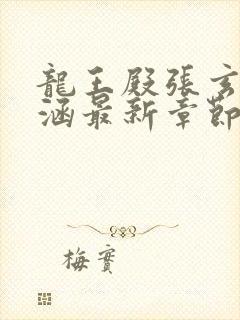 龍王殿張玄
涵最新章節
梅寶